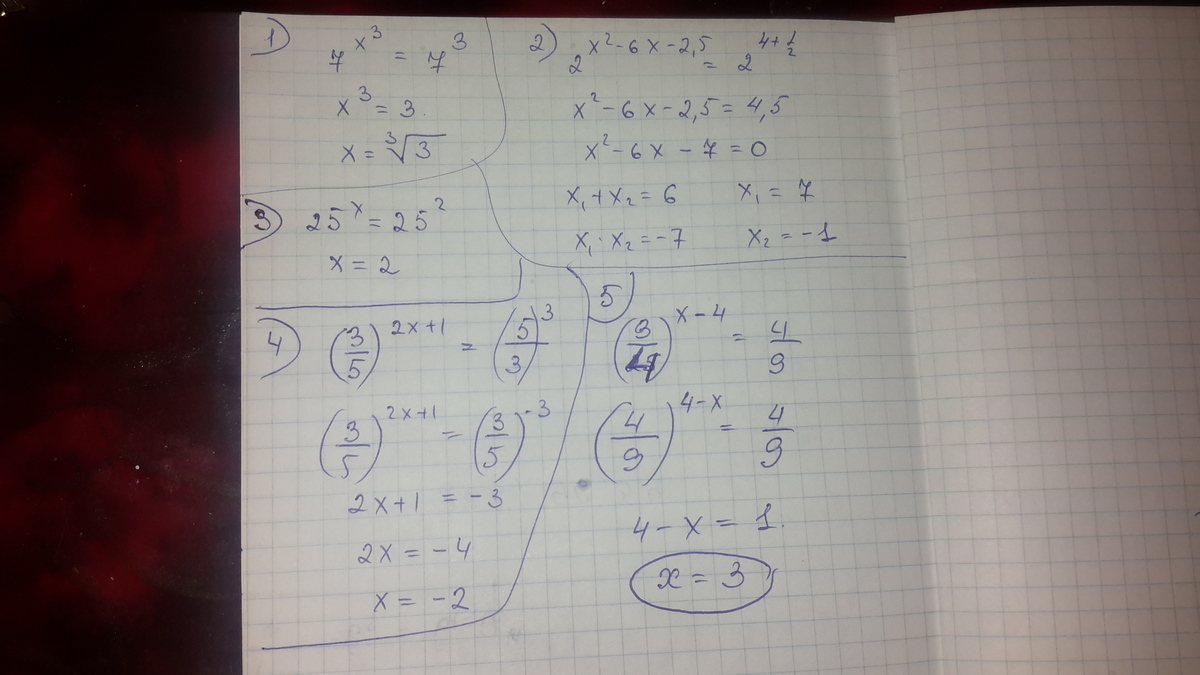 1)
7^{x^3} = 7^3
x^3 = 3.
x = ∛3
2)
2^{x^2 - 6x - 2,5} = 2^{4 + 1/2}
x^2 - 6x - 2,5 = 4,5
x^2 - 6x - 7 = 0
x₁ + x₂ = 6   x₁ = 7
x₁ · x₂ = -7   x₂ = -1
3)
25^x = 25^2
x = 2
4)
(3/5)^{2x+1} = (5/3)^3
(3/5)^{2x+1} = (3/5)^{-3}
2x+1 = -3
2x = -4
x = -2
5)
(9/4)^{x-4} = 4/9
(4/9)^{4-x} = 4/9
4 - x = 1.
x = 3